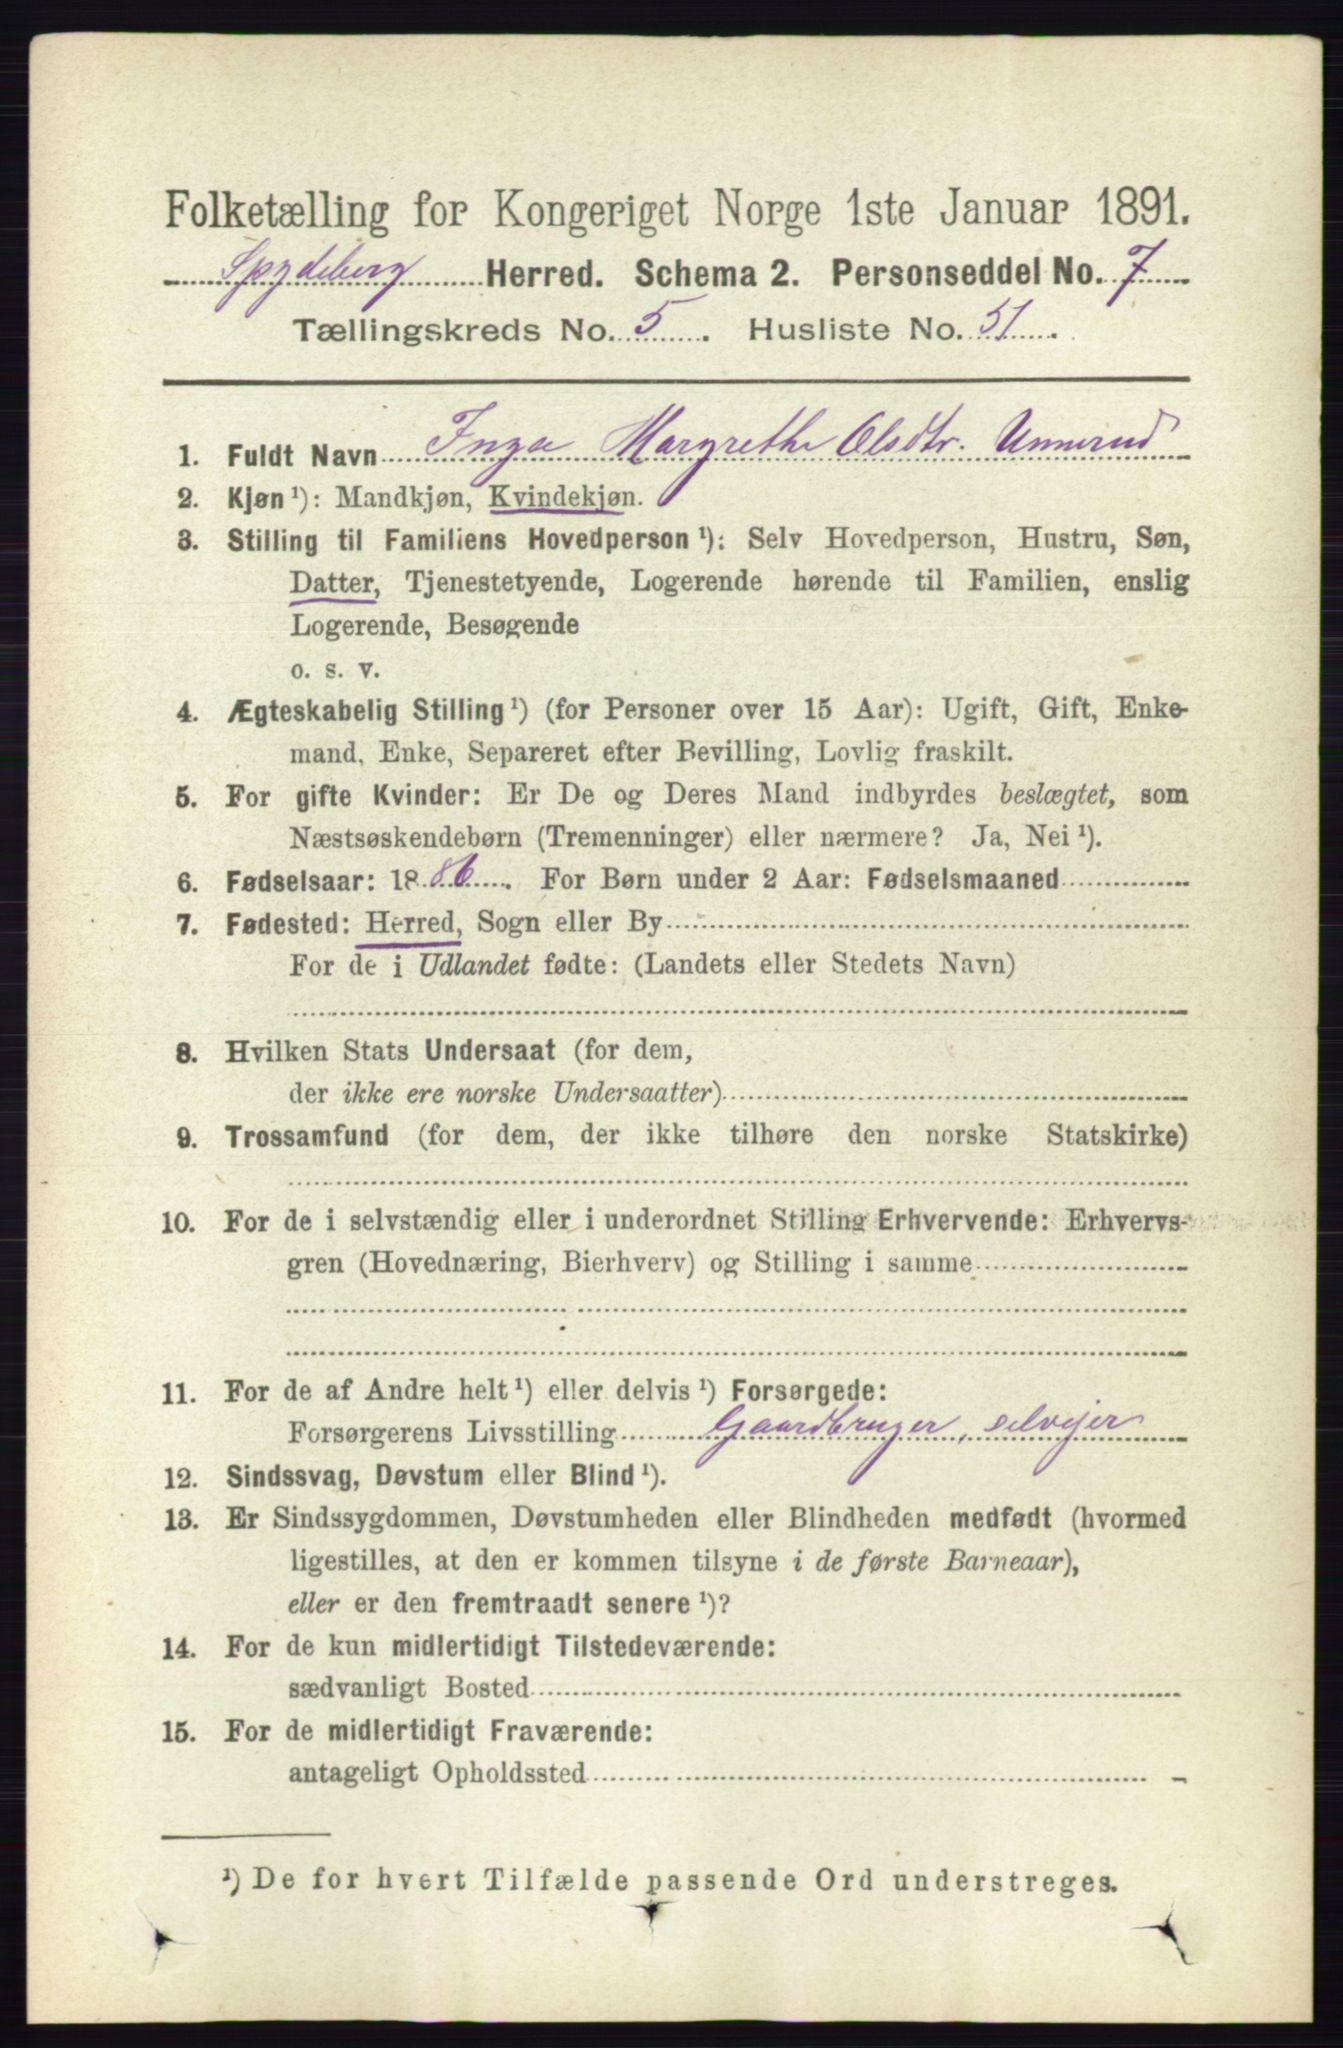 Folketælling for Kongeriget Norge 1ste Januar 1891.
Spydeberg Herred. Schema 2. Personseddel No. 7
Tællingskreds No. 5. Husliste No. 51.
1. Fuldt Navn Inga Margrethe Olsdtr. Unnerud
2. Kjøn¹): Mandkjøn, Kvindekjøn.
3. Stilling til Familiens Hovedperson¹): Selv Hovedperson, Hustru, Søn,
Datter, Tjenestetyende, Logerende hørende til Familien, enslig
Logerende, Besøgende
o. s. v.
4. Ægteskabelig Stilling¹) (for Personer over 15 Aar): Ugift, Gift, Enke-
mand, Enke, Separeret efter Bevilling, Lovlig fraskilt.
5. For gifte Kvinder: Er De og Deres Mand indbyrdes beslægtet, som
Næstsøskendebørn (Tremenninger) eller nærmere? Ja, Nei¹).
6. Fødselsaar: 1886. For Børn under 2 Aar: Fødselsmaaned
7. Fødested: Herred, Sogn eller By
For de i Udlandet fødte: (Landets eller Stedets Navn)
8. Hvilken Stats Undersaat (for dem,
der ikke ere norske Undersaatter)
9. Trossamfund (for dem, der ikke tilhøre den norske Statskirke)
10. For de i selvstændig eller i underordnet Stilling Erhvervende: Erhvervs-
gren (Hovednæring, Bierhverv) og Stilling i samme
11. For de af Andre helt¹) eller delvis¹) Forsørgede:
Forsørgerens Livsstilling Gaardbruger, selvejer
12. Sindssvag, Døvstum eller Blind¹).
13. Er Sindssygdommen, Døvstumheden eller Blindheden medfødt (hvormed
ligestilles, at den er kommen tilsyne i de første Barneaar),
eller er den fremtraadt senere¹)?
14. For de kun midlertidigt Tilstedeværende:
sædvanligt Bosted
15. For de midlertidigt Fraværende:
antageligt Opholdssted
¹) De for hvert Tilfælde passende Ord understreges.